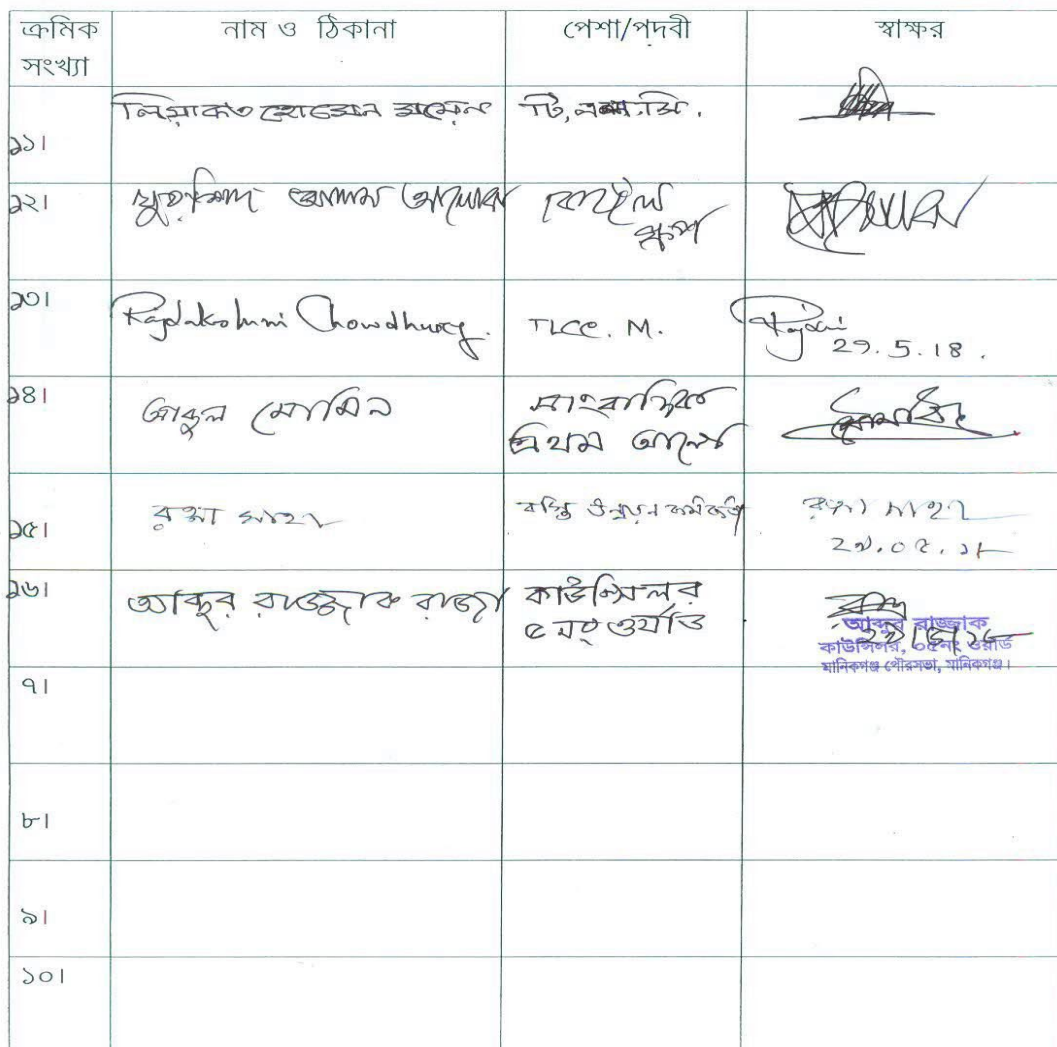 ক্রমিক সংখ্যা নাম ও ঠিকানা পেশা/পদবী স্বাক্ষর
১১। লিয়াকত হোসেন টি,
১২। খুরশিদ আলম
১৩। Rajdakshmi Chowdhury. TLCC. M. 29.5.18.
১৪। আবুল মোমিন সাংবাদিক
প্রথম আলো
১৫। রত্না সাহা বস্তি উন্নয়ন কর্মকর্তা রত্না সাহা
২৯.০৫.১৮
১৬। আব্দুর রাজ্জাক রাজা কাউন্সিলর
৫ নং ওয়ার্ড
আব্দুর রাজ্জাক
কাউন্সিলর, ০৫নং ওয়ার্ড
মানিকগঞ্জ পৌরসভা, মানিকগঞ্জ।
৭।
৮।
৯।
১০।